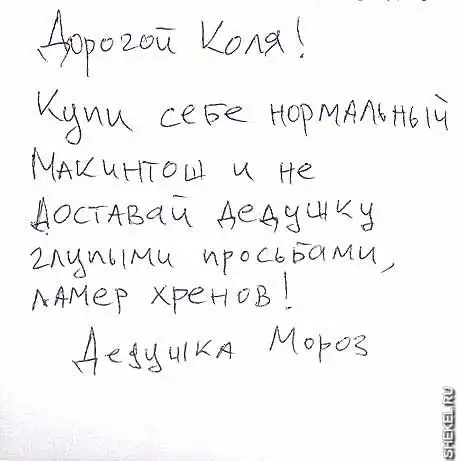 Дорогой Коля!
Купи себе нормальный
Макинтош и не
доставай дедушку
глупыми просьбами,
ламер хренов!
Дедушка Мороз
SHEKEL.RU